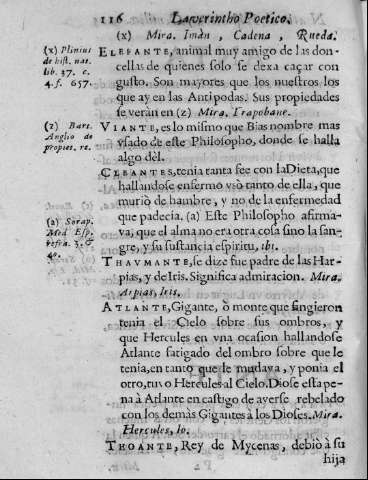 116 Lavcrintho Poetico.
(x) Mira. Imàn, Cadena, Rueda.
(x) Plinius
de hist. nat.
lib. 37. c.
4. f. 657.
ELEFANTE, animal muy amigo de las don-
cellas de quienes solo se dexa caçar con
gusto. Son mayores que los nuestros los
que ay en las Antipodas. Sus propiedades
se veràn en (z) Mira. Trapobane.
(z) Bart.
Anglio de
propiet. re.
VIANTE, es lo mismo que Bias nombre mas
vsado de este Philosopho, donde se halla
algo dèl.
CLEANTES, tenia tanta fee con la Dieta, que
hallandose enfermo vsò tanto de ella, que
murió de hambre, y no de la enfermedad
que padecia. (a) Este Philosopho afirma-
va, que el alma no era otra cosa sino la san-
gre, y su sustancia espiritu, ibi.
(a) Serap.
Med Esp.
refra. 3. &
40.
THAVMANTE, se dize fue padre de las Har-
pias, y de Iris. Significa admiracion. Mira.
Arpias, Iris.
ATLANTE, Gigante, ò monte que fingieron
tenia el Cielo sobre sus ombros, y
que Hercules en vna ocasion hallandose
Atlante fatigado del ombro sobre que le
tenia, en tanto que le mudava, y ponia el
otro, tuvo Hercules al Cielo. Diose esta pe-
na à Atlante en castigo de averse rebelado
con los demàs Gigantes à los Dioses. Mira.
Hercules, Io.
THOANTE, Rey de Mycenas, debiò à su
hija